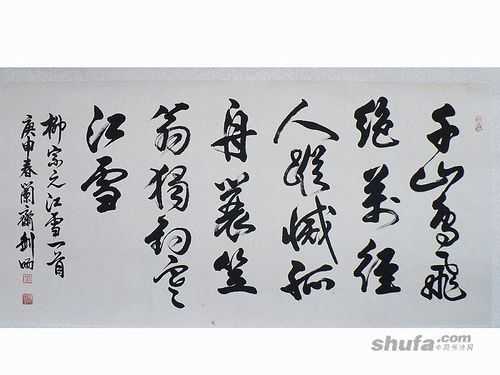 千山鳥飛
絕萬徑
人蹤滅孤
舟蓑笠
翁獨釣寒
江雪
柳宗元江雪一首
庚申春蘭齋
shufa.com
中国书法网